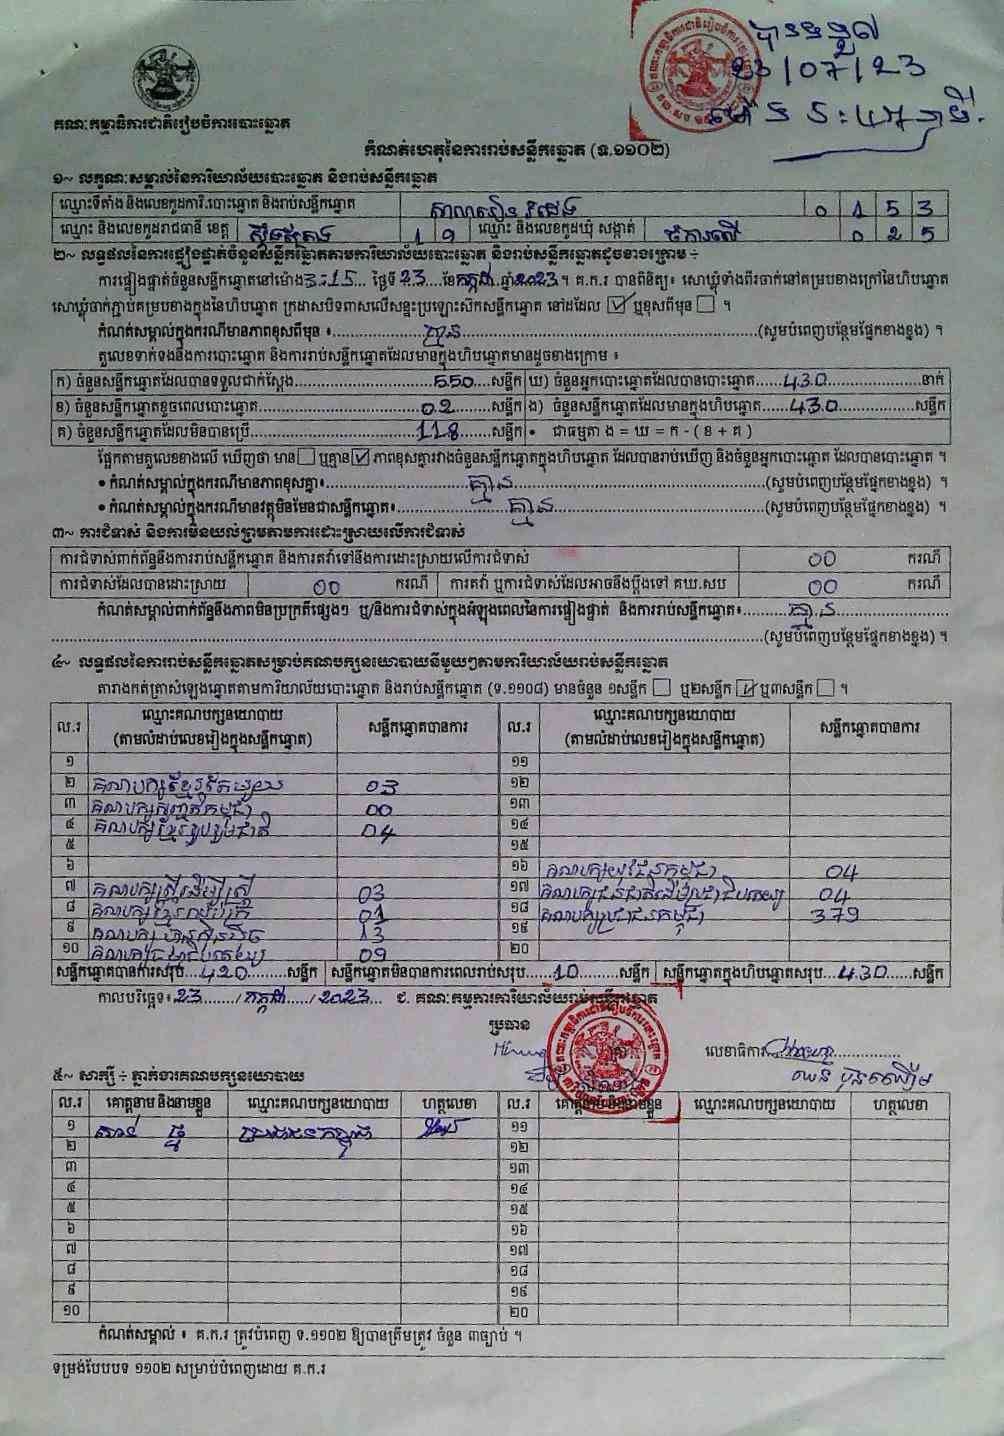 បានទទួល
23/07/23
គណៈកម្មាធិការជាតិរៀបចំការបោះឆ្នោត
កំណត់ហេតុនៃការរាប់សន្លឹកឆ្នោត (ទ.១១០២)
១~ លក្ខណៈសម្គាល់នៃការិយាល័យបោះឆ្នោត និងរាប់សន្លឹកឆ្នោត
ឈ្មោះទីតាំង និងលេខកូដការិ.បោះឆ្នោត និងរាប់សន្លឹកឆ្នោត 0 1 5 3
ឈ្មោះ និងលេខកូដរាជធានី ខេត្ត ស្ទឹងត្រែង 1 9 ឈ្មោះ និងលេខកូដឃុំ សង្កាត់ 0 2 5
២~ លទ្ធផលនៃការផ្ទៀងផ្ទាត់ចំនួនសន្លឹកឆ្នោតតាមការិយាល័យបោះឆ្នោត និងរាប់សន្លឹកឆ្នោតដូចខាងក្រោម ÷
ការផ្ទៀងផ្ទាត់ចំនួនសន្លឹកឆ្នោតនៅម៉ោង 3:15 ថ្ងៃទី 23 ខែ កក្កដា ឆ្នាំ 2023 ។ គ.ក.រ បានពិនិត្យ៖ សោឃ្មុំទាំងពីរចាក់នៅគម្របខាងក្រៅនៃហិបឆ្នោត
សោឃ្មុំចាក់ភ្ជាប់គម្របខាងក្នុងនៃហិបឆ្នោត ក្រដាសបិទពាសលើសន្ទះប្រឡោះសិកសន្លឹកឆ្នោត នៅដដែល ☑ ឬខុសពីមុន ☐ ។
កំណត់សម្គាល់ក្នុងករណីមានភាពខុសពីមុន ៖ គ្មាន (សូមបំពេញបន្ថែមផ្នែកខាងខ្នង) ។
តួលេខទាក់ទងនឹងការបោះឆ្នោត និងការរាប់សន្លឹកឆ្នោតដែលមានក្នុងហិបឆ្នោតមានដូចខាងក្រោម ៖
ក) ចំនួនសន្លឹកឆ្នោតដែលបានទទួលជាក់ស្តែង 550 សន្លឹក ឃ) ចំនួនអ្នកបោះឆ្នោតដែលបានបោះឆ្នោត 430 នាក់
ខ) ចំនួនសន្លឹកឆ្នោតខូចពេលបោះឆ្នោត 02 សន្លឹក ង) ចំនួនសន្លឹកឆ្នោតដែលមានក្នុងហិបឆ្នោត 430 សន្លឹក
គ) ចំនួនសន្លឹកឆ្នោតដែលមិនបានប្រើ 118 សន្លឹក • ជាធម្មតា ង = ឃ = ក - ( ខ + គ )
ផ្អែកតាមតួលេខខាងលើ ឃើញថា មាន ☐ ឬគ្មាន ☑ ភាពខុសគ្នារវាងចំនួនសន្លឹកឆ្នោតក្នុងហិបឆ្នោត ដែលបានរាប់ឃើញ និងចំនួនអ្នកបោះឆ្នោត ដែលបានបោះឆ្នោត ។
• កំណត់សម្គាល់ក្នុងករណីមានភាពខុសគ្នា៖ គ្មាន (សូមបំពេញបន្ថែមផ្នែកខាងខ្នង) ។
• កំណត់សម្គាល់ក្នុងករណីមានវត្ថុមិនមែនជាសន្លឹកឆ្នោត៖ គ្មាន (សូមបំពេញបន្ថែមផ្នែកខាងខ្នង) ។
៣~ ការជំទាស់ និងការមិនយល់ព្រមតាមការដោះស្រាយលើការជំទាស់
ការជំទាស់ពាក់ព័ន្ធនឹងការរាប់សន្លឹកឆ្នោត និងការតវ៉ាទៅនឹងការដោះស្រាយលើការជំទាស់ 00 ករណី
ការជំទាស់ដែលបានដោះស្រាយ 00 ករណី ការតវ៉ា ឬការជំទាស់ដែលអាចនឹងប្តឹងទៅ គឃ.សប 00 ករណី
កំណត់សម្គាល់ពាក់ព័ន្ធនឹងភាពមិនប្រក្រតីផ្សេងៗ ឬ/និងការជំទាស់ក្នុងអំឡុងពេលនៃការផ្ទៀងផ្ទាត់ និងការរាប់សន្លឹកឆ្នោត៖ គ្មាន
(សូមបំពេញបន្ថែមផ្នែកខាងខ្នង) ។
៤~ លទ្ធផលនៃការរាប់សន្លឹកឆ្នោតសម្រាប់គណបក្សនយោបាយនីមួយៗតាមការិយាល័យរាប់សន្លឹកឆ្នោត
តារាងកត់ត្រាសំឡេងឆ្នោតតាមការិយាល័យបោះឆ្នោត និងរាប់សន្លឹកឆ្នោត (ទ.១១០៨) មានចំនួន ១សន្លឹក ☐ ឬ២សន្លឹក ☑ ឬ៣សន្លឹក ☐ ។
ល.រ ឈ្មោះគណបក្សនយោបាយ (តាមលំដាប់លេខរៀងក្នុងសន្លឹកឆ្នោត) សន្លឹកឆ្នោតបានការ ល.រ ឈ្មោះគណបក្សនយោបាយ (តាមលំដាប់លេខរៀងក្នុងសន្លឹកឆ្នោត) សន្លឹកឆ្នោតបានការ
១ ១១
២ គណបក្សខ្មែរតែមួយ 03 ១២
៣ គណបក្សសញ្ជាតិកម្ពុជា 00 ១៣
៤ គណបក្សខ្មែររួបរួមជាតិ 04 ១៤
៥ ១៥
៦ ១៦ គណបក្សយុវជនកម្ពុជា 04
៧ គណបក្សស្ត្រីដើម្បីស្ត្រី 03 ១៧ គណបក្សជនជាតិដើមប្រជាធិបតេយ្យ 04
៨ គណបក្សខ្មែរឈប់ក្រ 01 ១៨ គណបក្សប្រជាជនកម្ពុជា 379
៩ គណបក្សហ្វ៊ុនស៊ិនប៉ិច 13 ១៩
១០ 09 ២០
សន្លឹកឆ្នោតបានការសរុប 420 សន្លឹក សន្លឹកឆ្នោតមិនបានការពេលរាប់សរុប 10 សន្លឹក សន្លឹកឆ្នោតក្នុងហិបឆ្នោតសរុប 430 សន្លឹក
កាលបរិច្ឆេទ៖ 23 / កក្កដា / 2023 ជ. គណៈកម្មការការិយាល័យរាប់សន្លឹកឆ្នោត
ប្រធាន
លេខាធិការ
៥~ សាក្សី ÷ ភ្នាក់ងារគណបក្សនយោបាយ
ល.រ គោត្តនាម និងនាមខ្លួន ឈ្មោះគណបក្សនយោបាយ ហត្ថលេខា ល.រ គោត្តនាម និងនាមខ្លួន ឈ្មោះគណបក្សនយោបាយ ហត្ថលេខា
១ ប្រជាជនកម្ពុជា ១១
២ ១២
៣ ១៣
៤ ១៤
៥ ១៥
៦ ១៦
៧ ១៧
៨ ១៨
៩ ១៩
១០ ២០
កំណត់សម្គាល់ ៖ គ.ក.រ ត្រូវបំពេញ ទ.១១០២ ឱ្យបានត្រឹមត្រូវ ចំនួន ៣ច្បាប់ ។
ទម្រង់បែបបទ ១១០២ សម្រាប់បំពេញដោយ គ.ក.រ